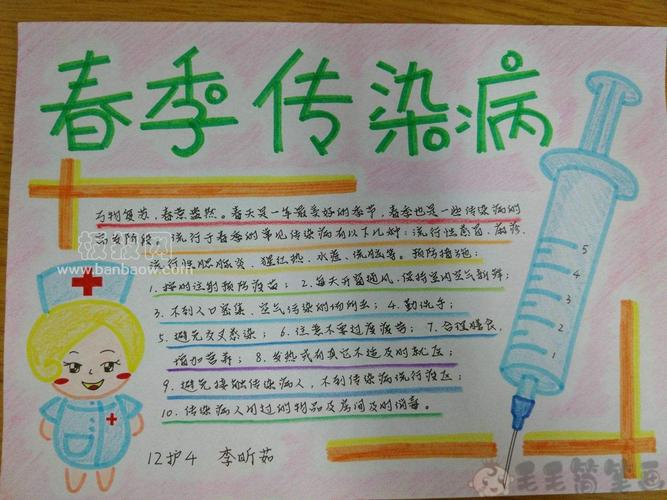 春季传染病
万物复苏，春意盎然。春天是一年最美好的季节，春季也是一些传染病的
高发阶段。流行于春季的常见传染病有以下几种：流行性感冒、麻疹、
流行性腮腺炎、猩红热、水痘、流脑等。预防措施：
1、按时注射预防疫苗；2、每天开窗通风，保持室内空气新鲜；
3、不到人口密集、空气污染的场所去；4、勤洗手；
5、避免交叉感染；6、注意不要过度疲劳；7、合理膳食，
增加营养；8、发热或有其它不适及时就医；
9、避免接触传染病人，不到传染病流行疫区；
10、传染病人用过的物品及房间及时消毒。
12护4 李昕茹
5
4
3
2
1
板报网
www.banbaow.com
毛毛简笔画